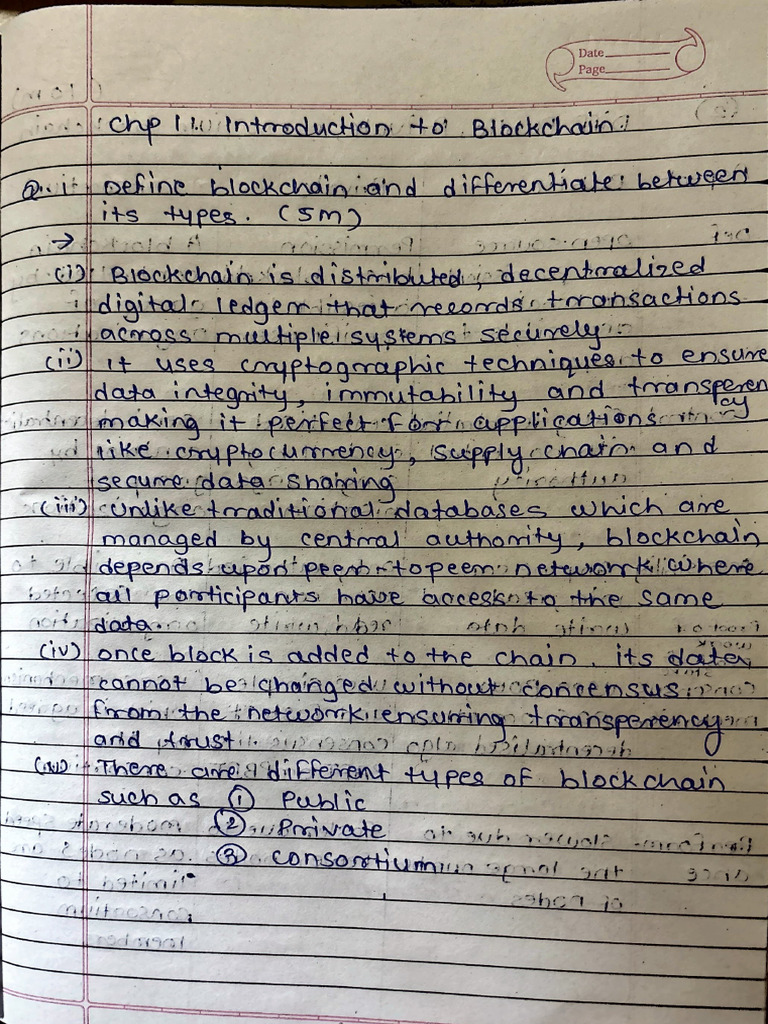 Date
Page
Chp 1. Introduction to Blockchain
Q. 1 Define blockchain and differentiate between
its types. (5M)
→
(i) Blockchain is distributed, decentralized
digital ledger that records transactions
across multiple systems securely.
(ii) it uses cryptographic techniques to ensure
data integrity, immutability and transperen
cy
making it perfect for applications
like cryptocurrency, supply chain and
secure data sharing
(iii) unlike traditional databases which are
managed by central authority, blockchain
depends upon peer-to peer network where
all participants have access to the same
data.
(iv) once block is added to the chain, its data
cannot be changed without concensus
from the network ensuring transperency
and trust.
There are different types of blockchain
such as ① Public
② Private
③ consortium